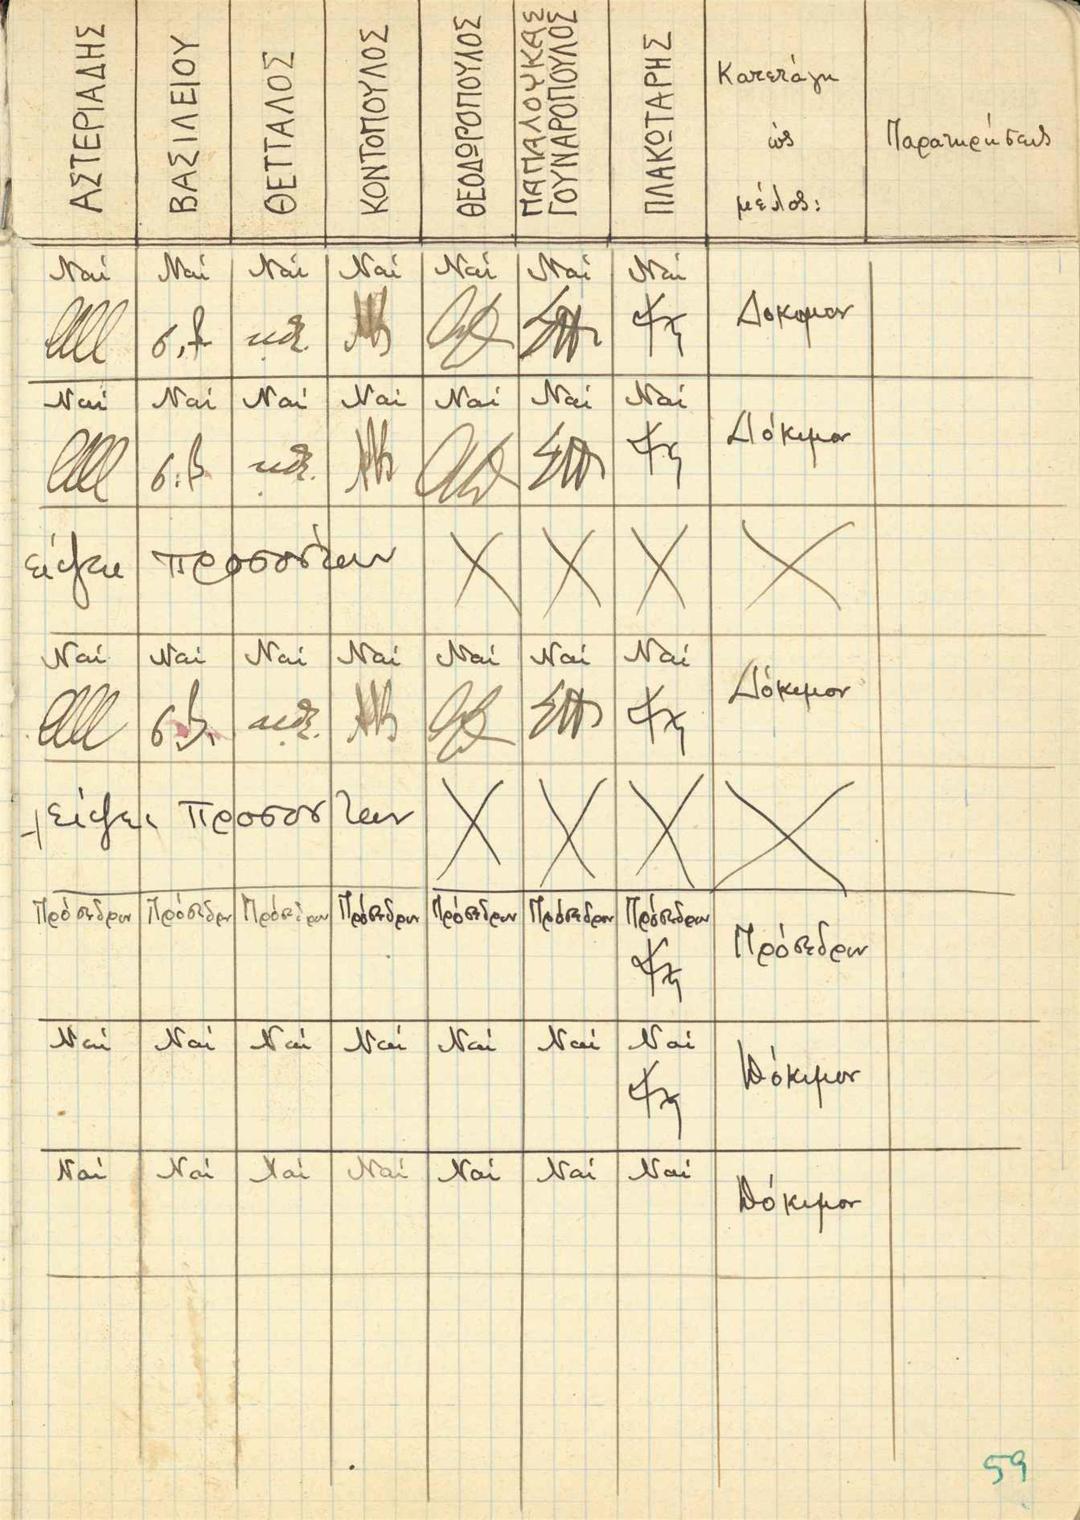 ΑΣΤΕΡΙΑΔΗΣ ΒΑΣΙΛΕΙΟΥ ΘΕΤΤΑΛΟΣ ΚΟΝΤΟΠΟΥΛΟΣ ΘΕΟΔΩΡΟΠΟΥΛΟΣ ΠΑΠΑΛΟΥΚΑΣ ΓΟΥΝΑΡΟΠΟΥΛΟΣ ΠΛΑΚΩΤΑΡΗΣ Κατετάγη ὡς μέλος: Παρατηρήσεις
Ναί Ναί Ναί Ναί Ναί Ναί Ναί Δόκιμον
Ναί Ναί Ναί Ναί Ναί Ναί Ναί Δόκιμον
προσόντων
Ναί Ναί Ναί Ναί Ναί Ναί Ναί Δόκιμον
προσόντων
Πρόσεδρον Πρόσεδρον Πρόσεδρον Πρόσεδρον Πρόσεδρον Πρόσεδρον Πρόσεδρον Πρόσεδρον
Ναί Ναί Ναί Ναί Ναί Ναί Ναί Δόκιμον
Ναί Ναί Ναί Ναί Ναί Ναί Ναί Δόκιμον
59